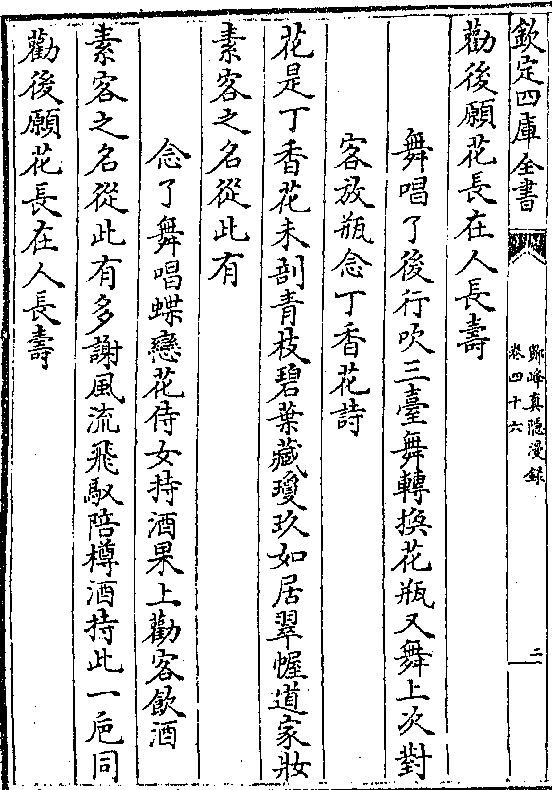 欽定四庫全書
鄮峰真隱漫錄
卷四十六
二
勸後願花長在人長壽
舞唱了後行吹三臺舞轉換花瓶又舞上次對
客放瓶念丁香花詩
花是丁香花未剖青枝碧葉藏瓊玖如居翠幄道家妝
素客之名從此有
念了舞唱蝶戀花侍女持酒果上勸客飲酒
素客之名從此有多謝風流飛馭陪樽酒持此一巵同
勸後願花長在人長壽